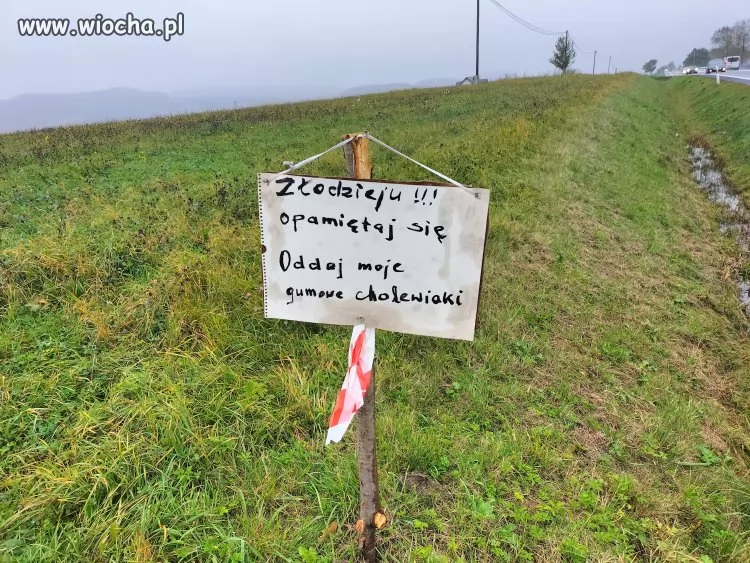 www.wiocha.pl
Złodzieju !!!
opamiętaj się
Oddaj moje
gumowe cholewiaki